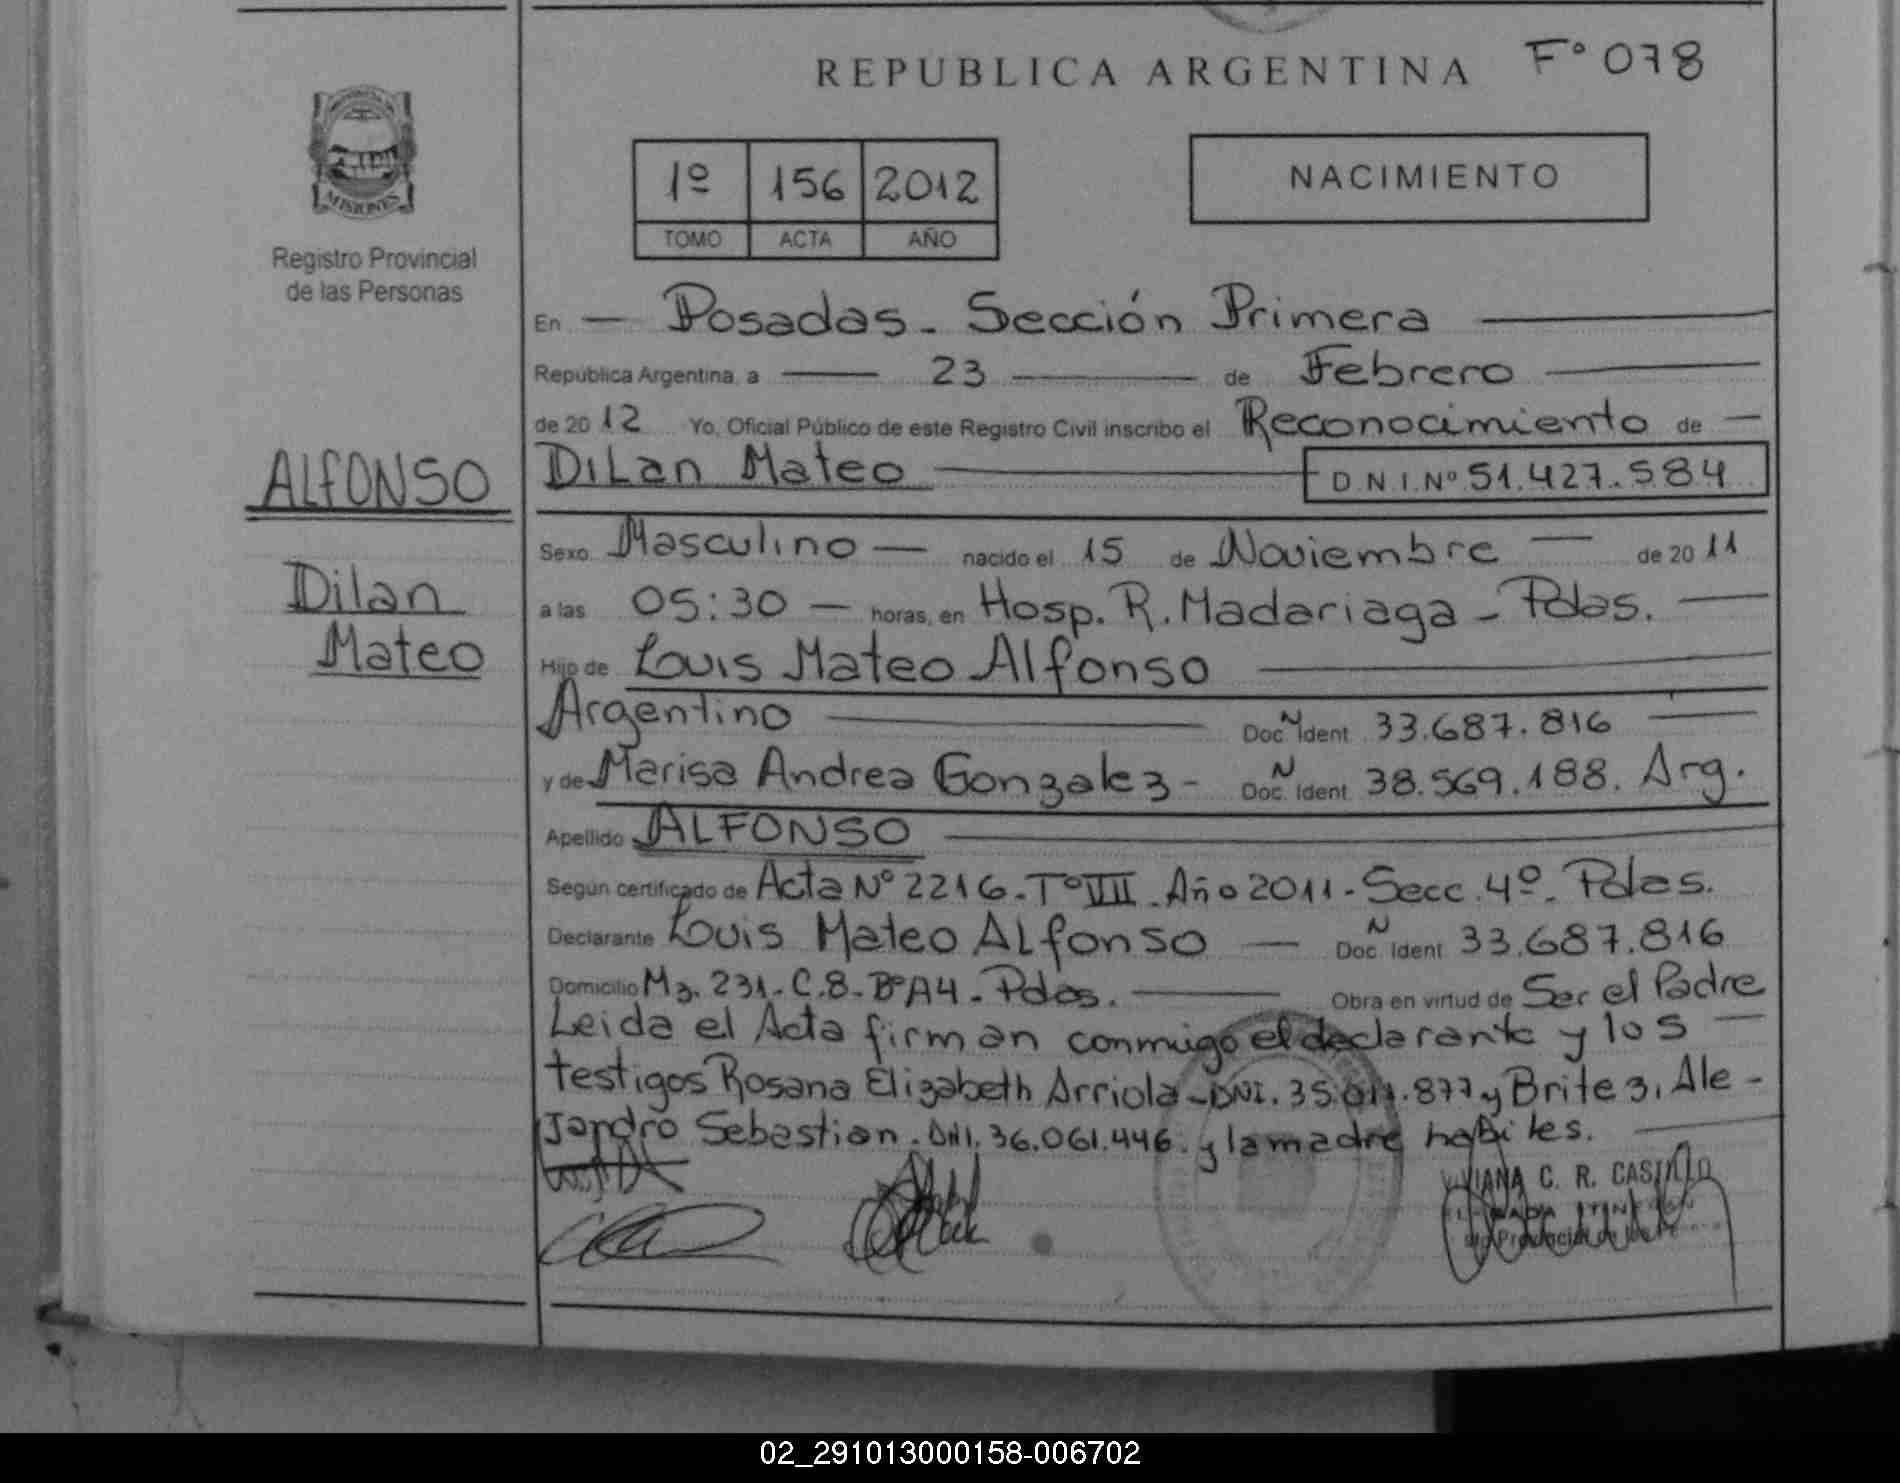 REPUBLICA ARGENTINA F° 078
MISIONES
Registro Provincial
de las Personas
1º 156 2012
TOMO ACTA AÑO
NACIMIENTO
En — Posadas - Sección Primera —
República Argentina, a — 23 — de Febrero —
de 2012 Yo, Oficial Público de este Registro Civil inscribo el Reconocimiento de —
ALFONSO
Dilan
Mateo
Dilan Mateo — D.N.I. Nº 51.427.584
Sexo Masculino — nacido el 15 de Noviembre — de 2011
a las 05:30 — horas, en Hosp. R. Madariaga - Pdas. —
Hijo de Louis Mateo Alfonso —
Argentino — Doc. N Ident 33.687.816 —
y de Marisa Andrea Gonzalez - Doc. N Ident 38.569.188. Arg.
Apellido ALFONSO —
Según certificado de Acta Nº 2216 - Tº VIII - Año 2011 - Secc. 4º - Pdas.
Declarante Louis Mateo Alfonso — Doc. N Ident 33.687.816
Domicilio Mz. 231 - C. 8 - Bº A4 - Pdas. — Obra en virtud de Ser el Padre
Leida el Acta firman conmigo el declarante y los —
testigos Rosana Elizabeth Arriola - DNI. 35.011.877 y Britez, Ale -
jandro Sebastian. DNI. 36.061.446. y la madre habiles. —
VIVIANA C. R. CASTILLO
02_291013000158-006702